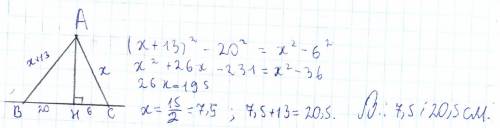 A
x+13
x
B
20
H
6
C
(x+13)² - 20² = x² - 6²
x² + 26x - 231 = x² - 36
26x = 195
x = 15/2 = 7,5 ; 7,5+13 = 20,5. В.: 7,5 і 20,5 см.